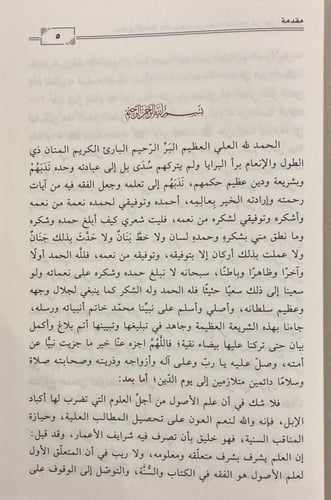 مقدمة
٥
بسم الله الرحمن الرحيم
الحمد لله العلي العظيم البَرِّ الرحيم البارئ الكريم المنان ذي
الطول والإنعام برأ البرايا ولم يتركهم سُدًى بل إلى عبادته وحده نَدَبَهُمْ
وبشريعة ودين عظيم حكمهم، نَدَبَهُمْ إلى تعلمه وجعل الفقه فيه من آيات
رحمته وإرادته الخير بِعالِمِيه، أحمده وتوفيقي لحمده نعمة من نعمه،
وأشكره وتوفيقي لشكره من نعمه، فليت شعري كيف أبلغ حمده وشكره
وما نطق مني بشكره وحمده لسان ولا خطَّ بَنَانٌ ولا حدَّث بذلك جَنَانٌ
ولا عملت بذلك أركان إلا بتوفيقه، وتوفيقه من نعمه، فللَّه الحمد أولًا
وآخرًا وظاهرًا وباطنًا، سبحانه لا نبلغ حمده وشكره على نعمائه ولو
سعينا إلى ذلك سعيًا حثيثًا فله الحمد وله الشكر كما ينبغي لجلال وجهه
وعظيم سلطانه، وأصلي وأسلم على نبيِّنا محمَّد خاتم أنبيائه ورسله،
جاءنا بهذه الشريعة العظيمة وجاهد في تبليغها وتبيينها أتم بلاغ وأكمل
بيان حتى تركنا عليها بيضاء نقية؛ فاللَّهُمَّ اجزه عنّا خير ما جزيت نبيًّا عن
أمته، وصلّ عليه يا ربّ وعلى آله وأزواجه وذريته وصحابته صلاة
وسلامًا دائمين متلازمين إلى يوم الدِّين؛ أما بعد:
فلا شك في أن علم الأصول من أجلّ العلوم التي تضرب لها أكباد
الإبل، فإنه والله لنعم العون على تحصيل المطالب العلية، وحيازة
المناقب السنية، فهو خليق بأن تصرف فيه شرايف الأعمار، وقد قيل:
إن العلم يشرف بشرف متعلَّقه ومعلومه، ولا ريب في أن المتعلَّق الأول
لعلم الأصول هو الفقه في الكتاب والسُّنَّة، والتوصّل إلى الوقوف على